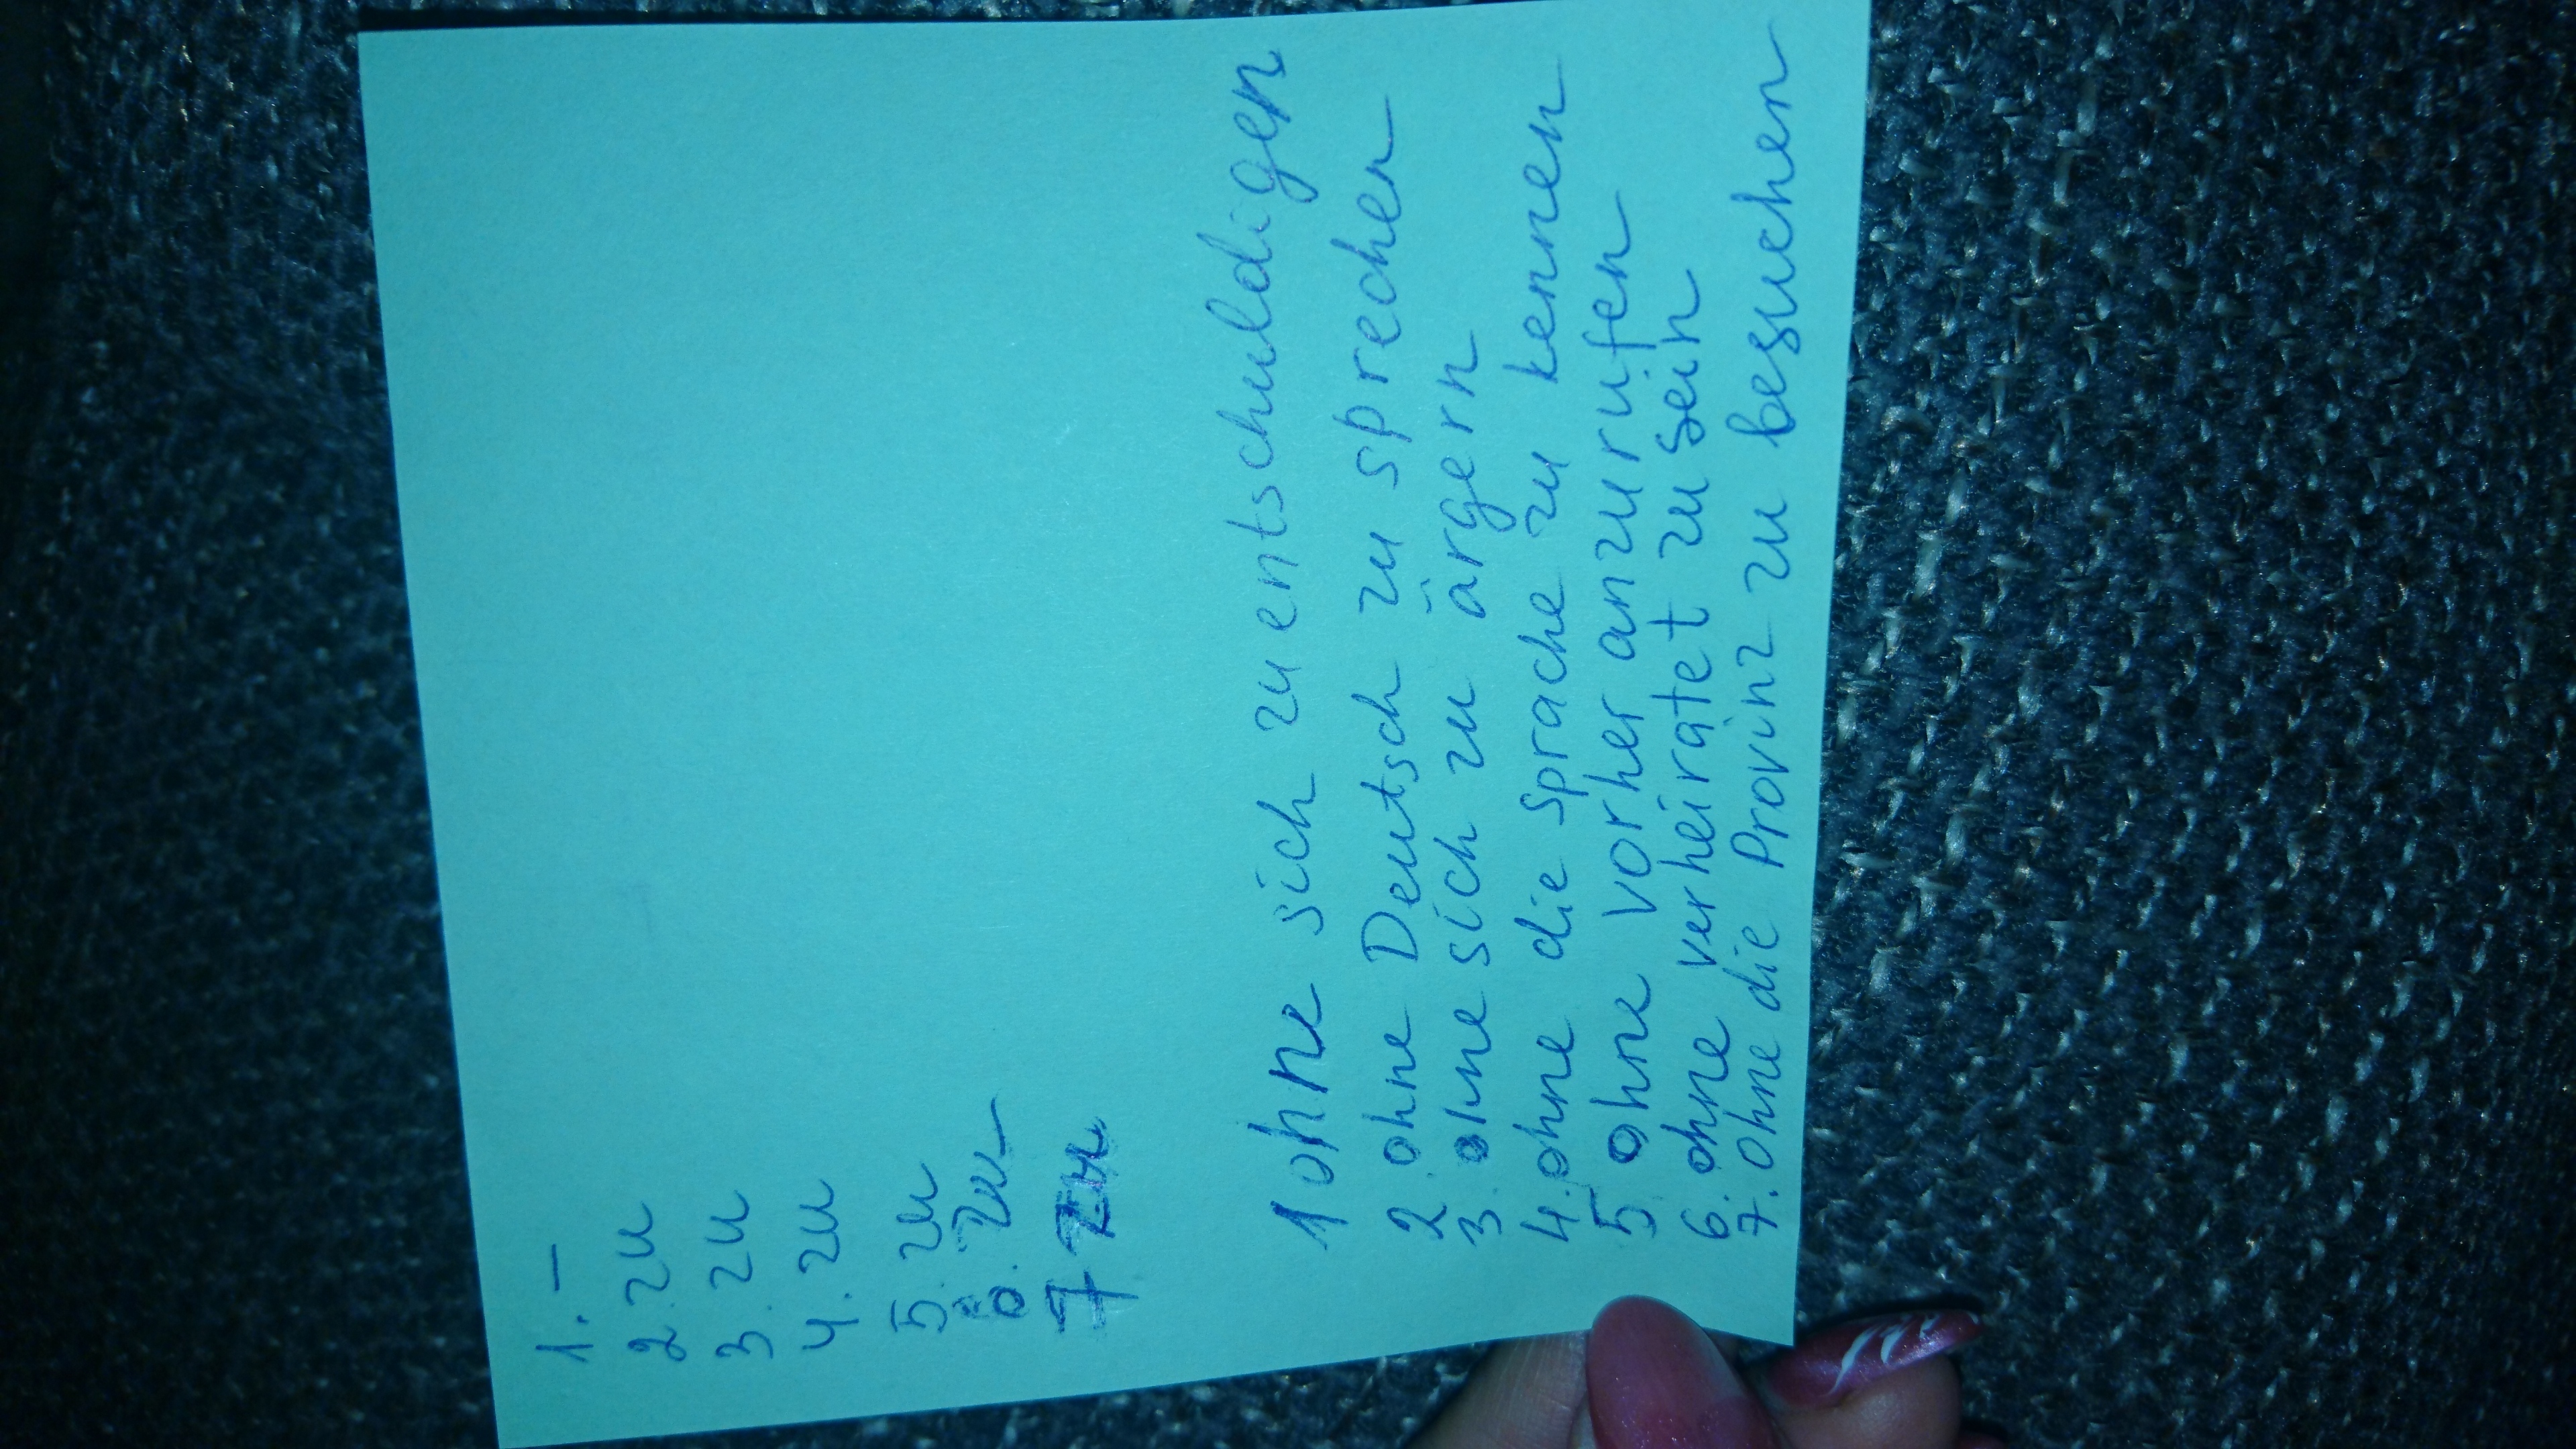 1. –
2. zu
3. zu
4. zu
5. zu
6. zu
7 zu
1 ohne sich zu entschuldigen
2. ohne Deutsch zu sprechen
3. ohne sich zu ärgern
4. ohne die Sprache zu kennen
5 ohne vorher anzurufen
6. ohne verheiratet zu sein
7. ohne die Provinz zu besuchen